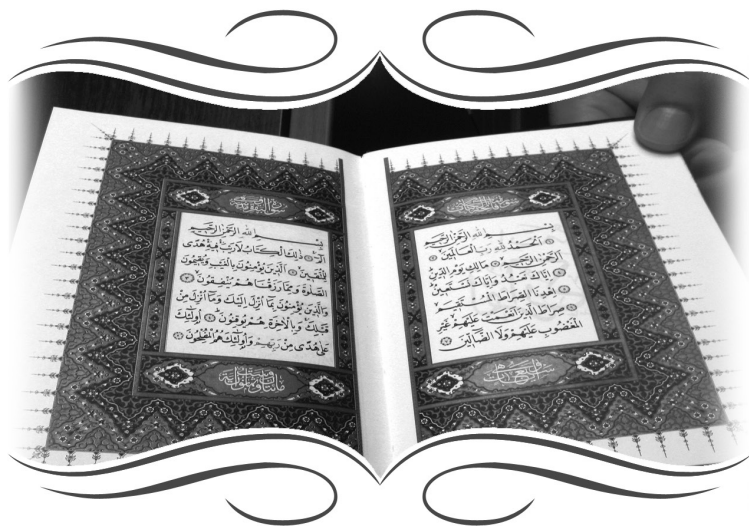 بِسْمِ اللهِ الرَّحْمٰنِ الرَّحِيمِ
اَلْحَمْدُ لِلّٰهِ رَبِّ الْعَالَمِينَ
اَلرَّحْمٰنِ الرَّحِيمِ مَالِكِ يَوْمِ الدِّينِ
اِيَّاكَ نَعْبُدُ وَاِيَّاكَ نَسْتَعِينُ
اِهْدِنَا الصِّرَاطَ الْمُسْتَقِيمَ
صِرَاطَ الَّذِينَ اَنْعَمْتَ عَلَيْهِمْ غَيْرِ
الْمَغْضُوبِ عَلَيْهِمْ وَلَا الضَّالِّينَ
سورة البقرة
بِسْمِ اللهِ الرَّحْمٰنِ الرَّحِيمِ
الٓمٓ ذٰلِكَ الْكِتَابُ لَا رَيْبَ فِيهِ هُدًى
لِلْمُتَّقِينَ اَلَّذِينَ يُؤْمِنُونَ بِالْغَيْبِ وَيُقِيمُونَ
الصَّلٰوةَ وَمِمَّا رَزَقْنَاهُمْ يُنْفِقُونَ
وَالَّذِينَ يُؤْمِنُونَ بِمَا اُنْزِلَ اِلَيْكَ وَمَا اُنْزِلَ مِنْ
قَبْلِكَ وَبِالْاٰخِرَةِ هُمْ يُوقِنُونَ اُولٰئِكَ
عَلٰى هُدًى مِنْ رَبِّهِمْ وَاُولٰئِكَ هُمُ الْمُفْلِحُونَ